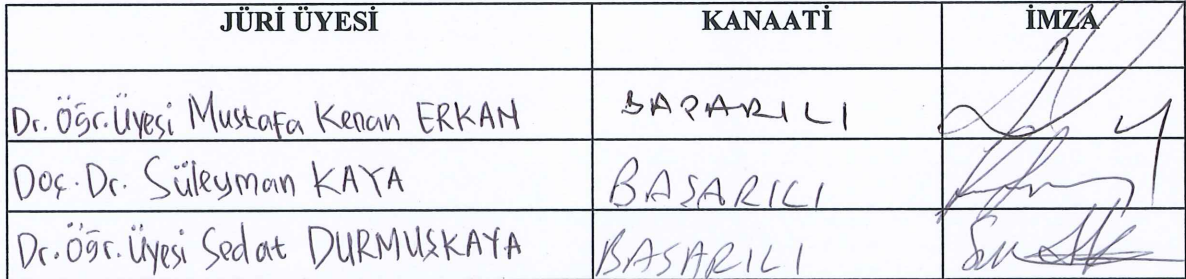 JÜRİ ÜYESİ KANAATİ İMZA
Dr. Öğr. Üyesi Mustafa Kenan ERKAN BAŞARILI
Doç. Dr. Süleyman KAYA BAŞARILI
Dr. Öğr. Üyesi Sedat DURMUŞKAYA BAŞARILI